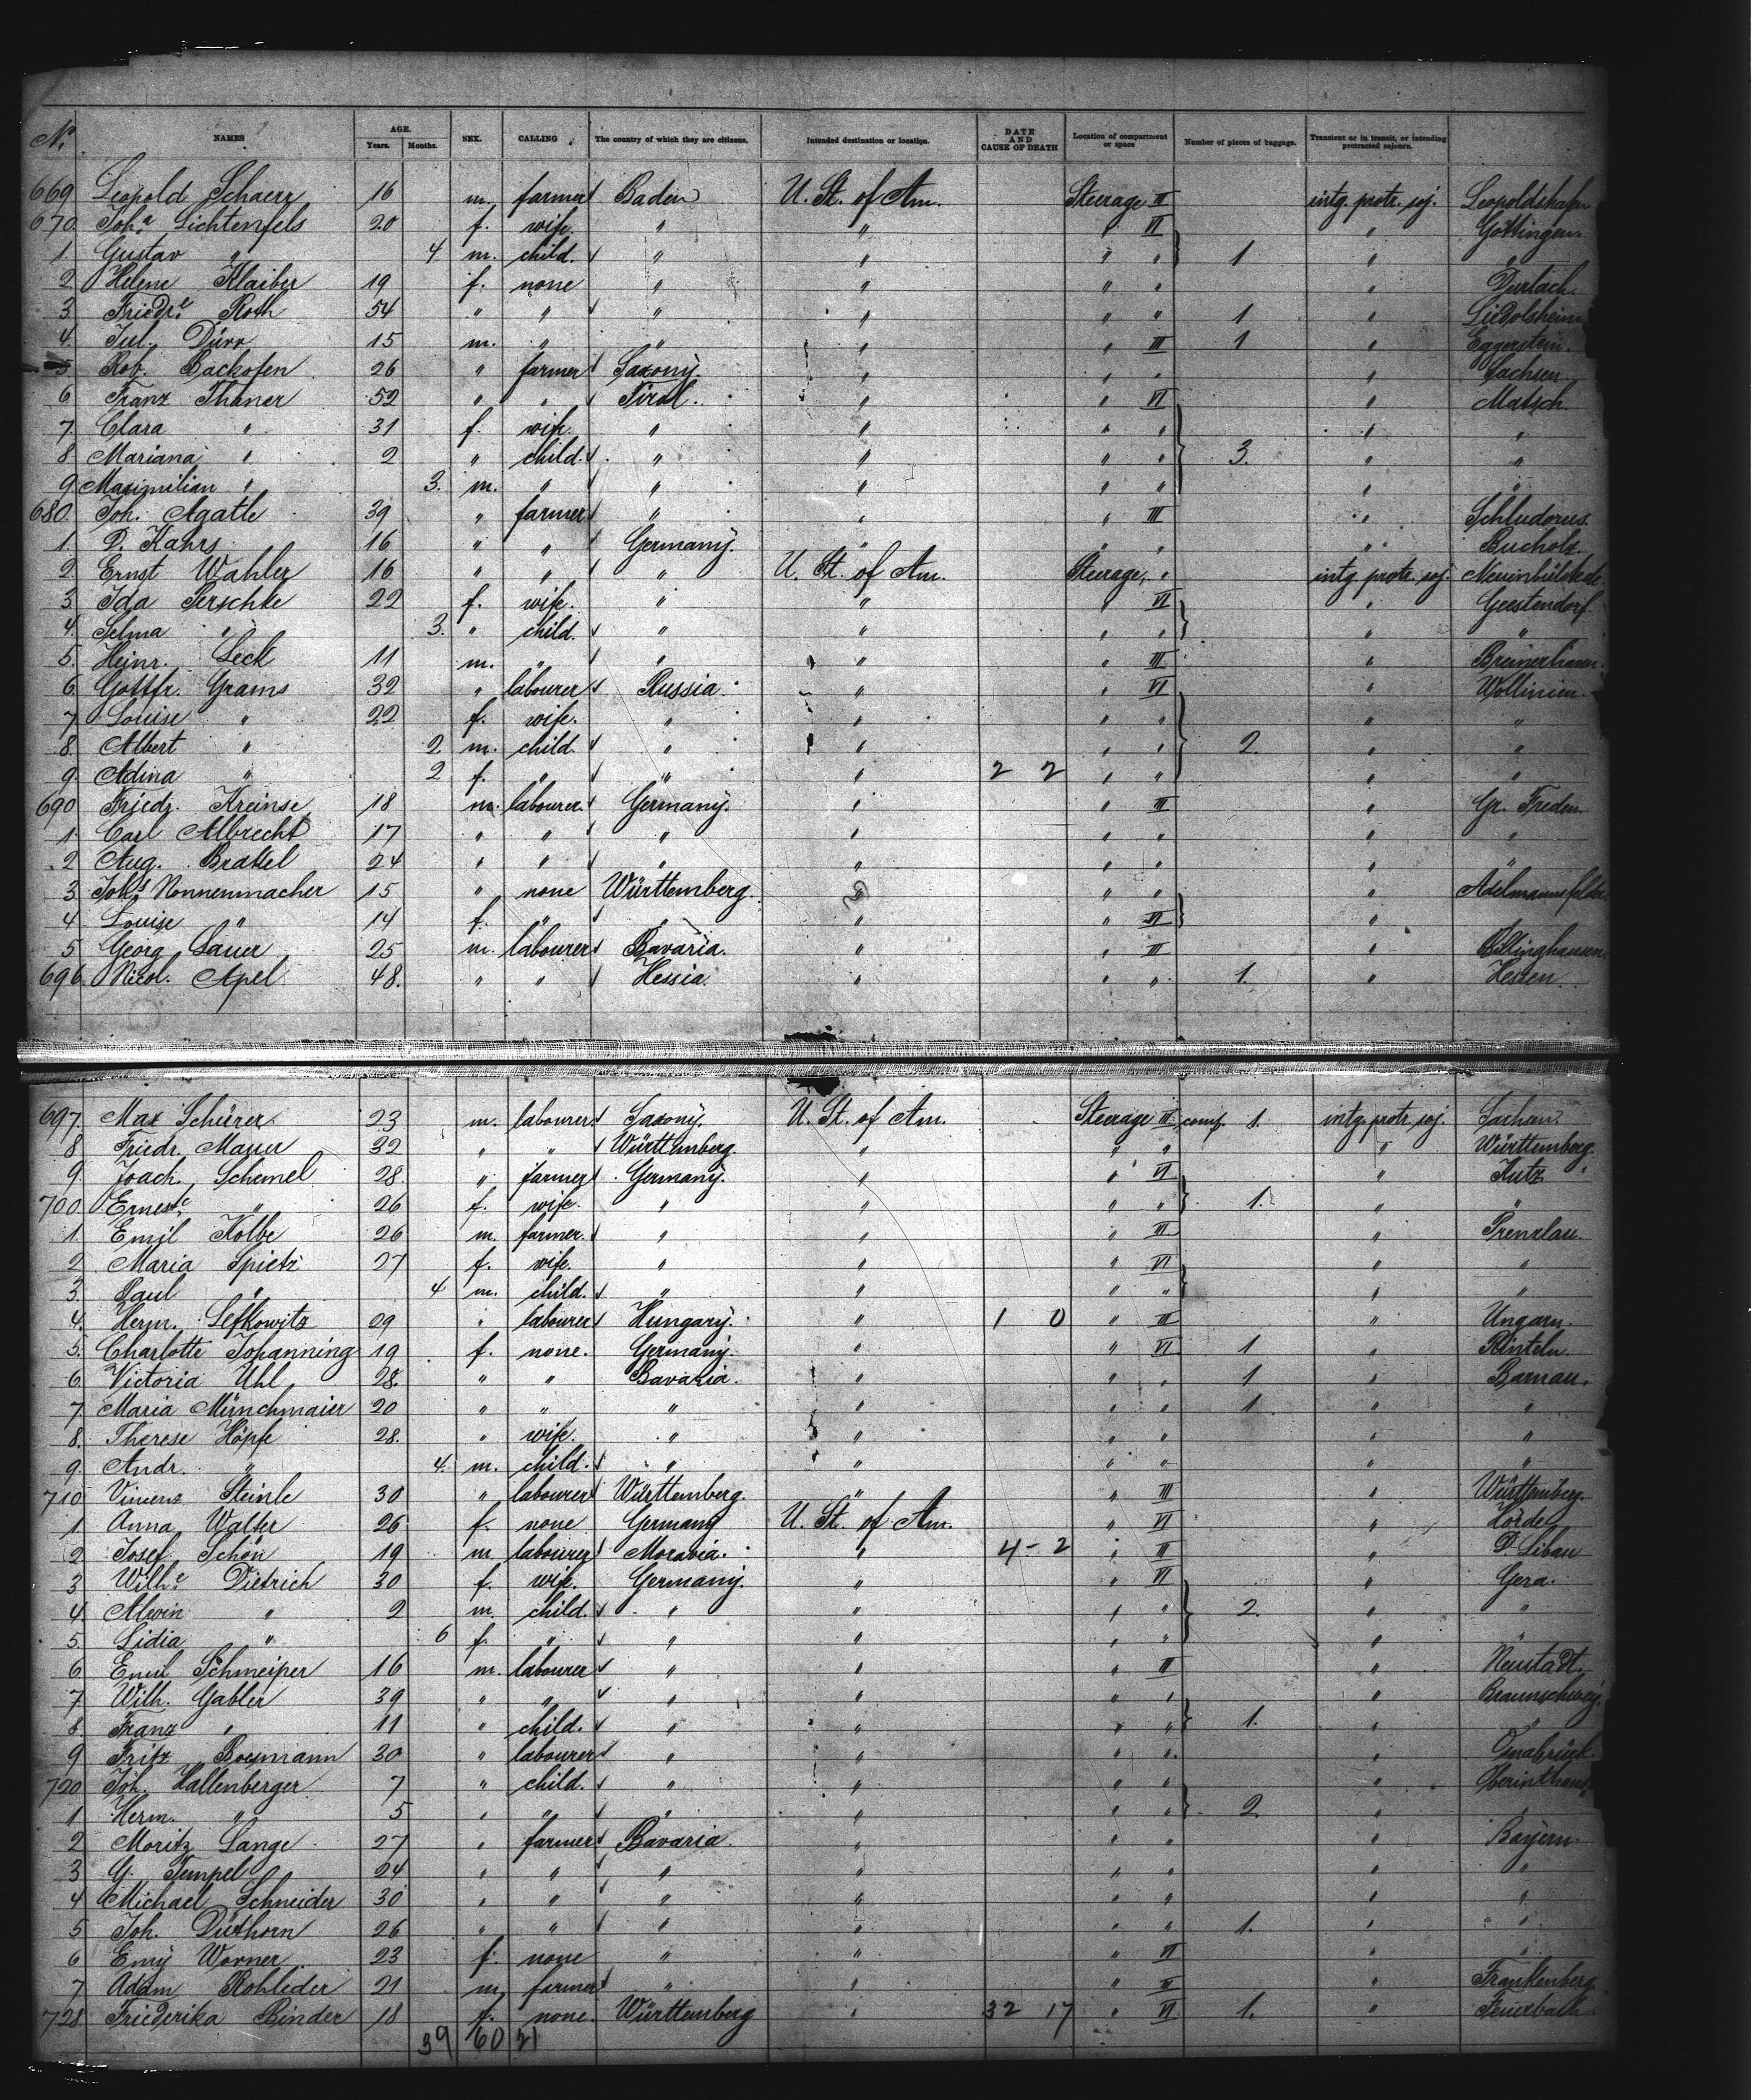 No. NAMES AGE. Years. Months. SEX. CALLING The country of which they are citizens. Intended destination or location. DATE AND CAUSE OF DEATH Location of compartment or space Number of pieces of baggage. Transient or in transit, or intending protracted sojourn.
669 Leopold Schaerr 16 m. farmer Baden U. St. of Am. Steerage III intg. protr. soj. Leopoldshafen
670 Joh.a Lichtenfels 20 f. wife " " " VI " Göttingen
1. Gustav " 4 m. child. " " " " 1 " "
2 Helene Klaiber 19 f. none " " " " " Durlach
3 Friedr.e Roth 54 " " " " " " 1 " Liedolsheim
4. Jul. Dürr 15 m. " " " " III 1 " Eggerstein.
5 Rob. Backofen 26 " farmer Saxony. " " " " Sachsen
6 Franz Thaner 52 " " Tirol. " " VI " Matsch.
7. Clara " 31 f. wife. " " " " " "
8 Mariana " 2 " child. " " " " 3. " "
9 Maximilian " 3. m. " " " " " " "
680. Joh. Agatle 39 " farmer " " " III " Schluderns.
1. D. Kahrs 16 " " Germany. " " " " Bucholz.
2. Ernst Wahler 16 " " " U. St. of Am. Steerage " intg. protr. soj.
3 Ida Perschke 22 f. wife. " " " VI " Geestendorf.
4. Selma " 3. " child. " " " " " "
5. Heinr. Leck 11 m. " " " " III " Bremerhaven.
6 Gottfr. Grams 32 " labourer Russia. " " VI " Wollinien.
7 Louise " 22 f. wife. " " " " " "
8. Albert " 2 m. child. " " " " 2. " "
9. Adina " 2 f. " " " 2 2 " " " "
690 Friedr. Kreinse 18 m. labourer Germany. " " III " Gr. Freden.
1. Carl Albrecht 17 " " " " " " " "
2 Aug. Brakel 24 " " " " " " " "
3 Joh.s Nonnenmacher 15 " none Württemberg. " " " " Adelmannsfelden.
4 Louise " 14 f. " " " " VI "
5 Georg Lauer 25 m. labourer Bavaria. " " III "
696 Nicol. Apel 48. " " Hessia. " " " 1. " Hessen.
697. Max Schürer 23 m. labourer Saxony. U. St. of Am. Steerage III comp. 1. intg. protr. soj. Sachsen.
8 Friedr. Mauer 32 " " Württemberg. " " " " Württemberg.
9. Joach. Schemel 28. " farmer Germany. " " VI " Kutz
700 Ernest.e " 26 f. wife. " " " " 1. " "
1. Emil Kolbe 26 m. farmer. " " " III " Prenzlau.
2 Maria Spietz 27 f. wife. " " " VI " "
3. Paul " 4 m. child. " " " " " "
4. Herm. Lefkowitz 29 " labourer Hungary. " 1 0 " III " Ungarn.
5. Charlotte Johanning 19 f. none. Germany. " " VI 1 " Rinteln.
6 Victoria Uhl 28. " " Bavaria. " " " 1 " Barnau.
7 Maria Münchmaier 20 " " " " " " 1 " "
8. Therese Höpfe 28. " wife. " " " " " "
9. Andr. " 4. m. child. " " " " " "
710 Vincenz Steinle 30 " labourer Württemberg. " " III " Württemberg.
1. Anna Walter 26 f. none Germany U. St. of Am. " VI " Hörde
2 Josef Schön 19 m. labourer Moravia. " 4-2 " III " D. Libau
3 Wilh.e Dietrich 30 f. wife. Germany. " " VI " Gera.
4. Alwin " 2 m. child. " " " " 2. " "
5. Lidia " 6 f. " " " " " " "
6 Emil Schmeiper 16 m. labourer " " " III " Neustadt.
7 Wilh. Gabler 39 " " " " " " " Braunschweig.
8 Franz " 11 " child. " " " " 1. " "
9 Fritz Bosmann 30 " labourer " " " " " Osnabrück.
720 Joh. Hallenberger 7 " child. " " " " "
1 Herm. " 5 " " " " " " 2. " "
2 Moritz Lange 27 " farmer Bavaria. " " " " Bayern.
3 G. Tempel 24 " " " " " " " "
4 Michael Schneider 30 " " " " " " " "
5 Joh. Düthorn 26 " " " " " " 1. " "
6 Emy Worner 23 f. none " " " VI " "
7 Adam Rohleder 21 m. farmer " " " III " Frankenberg.
728. Friederika Binder 18 f. none. Württemberg " 32 17 " VI 1. " Feuerbach.
39 60 21